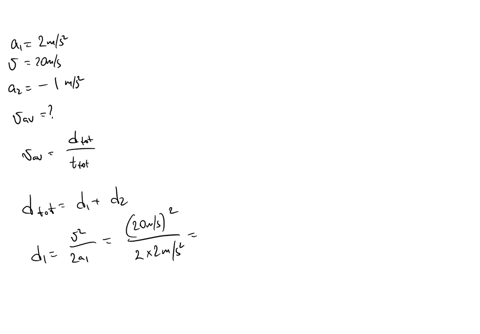 a₁ = 2 m/s²
v = 20 m/s
a₂ = - 1 m/s²
v_av = ?
v_av = d_tot / t_tot
d_tot = d₁ + d₂
d₁ = v² / 2a₁ = (20 m/s)² / 2 × 2 m/s² =